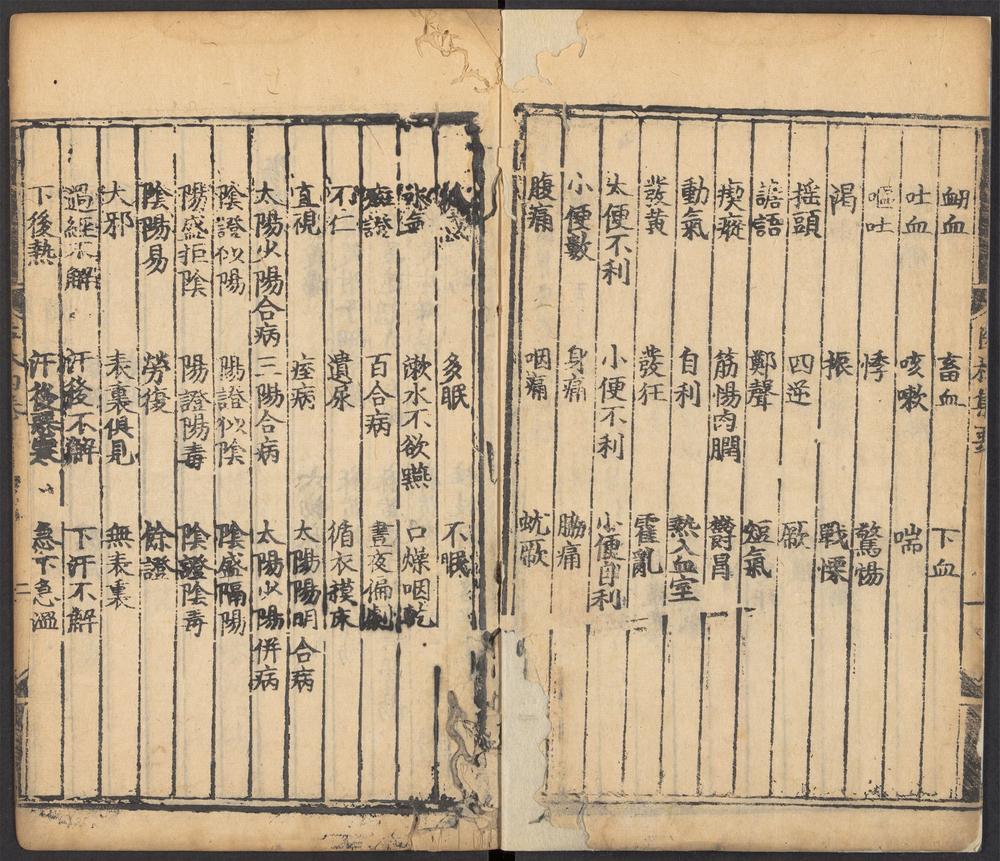 衂血 畜血 下血
吐血 咳嗽 喘
嘔吐 悸 驚惕
渴 振 戰慄
揺頭 四逆 厥
譫語 鄭聲 短氣
瘈瘲 筋惕肉瞤 欝冒
動氣 自利 熱入血室
發黄 發狂 霍亂
大便不利 小便不利 小便自利
小便數 身痛 脇痛
腹痛 咽痛 蚘厥
多眠 不眠
漱水不欲嚥 口燥咽乾
證 百合病 晝夜偏劇
不仁 遺尿 循衣摸床
直視 痓病 太陽陽明合病
太陽少陽合病 三陽合病 太陽少陽併病
陰證似陽 陽證似陰 陰盛隔陽
陽盛拒陰 陽證陽毒 陰證陰毒
陰陽易 勞復 餘證
大邪 表裏俱見 無表裏
過經不解 汗後不解 下汗不解
下後熱 汗後惡寒 急下急溫
二